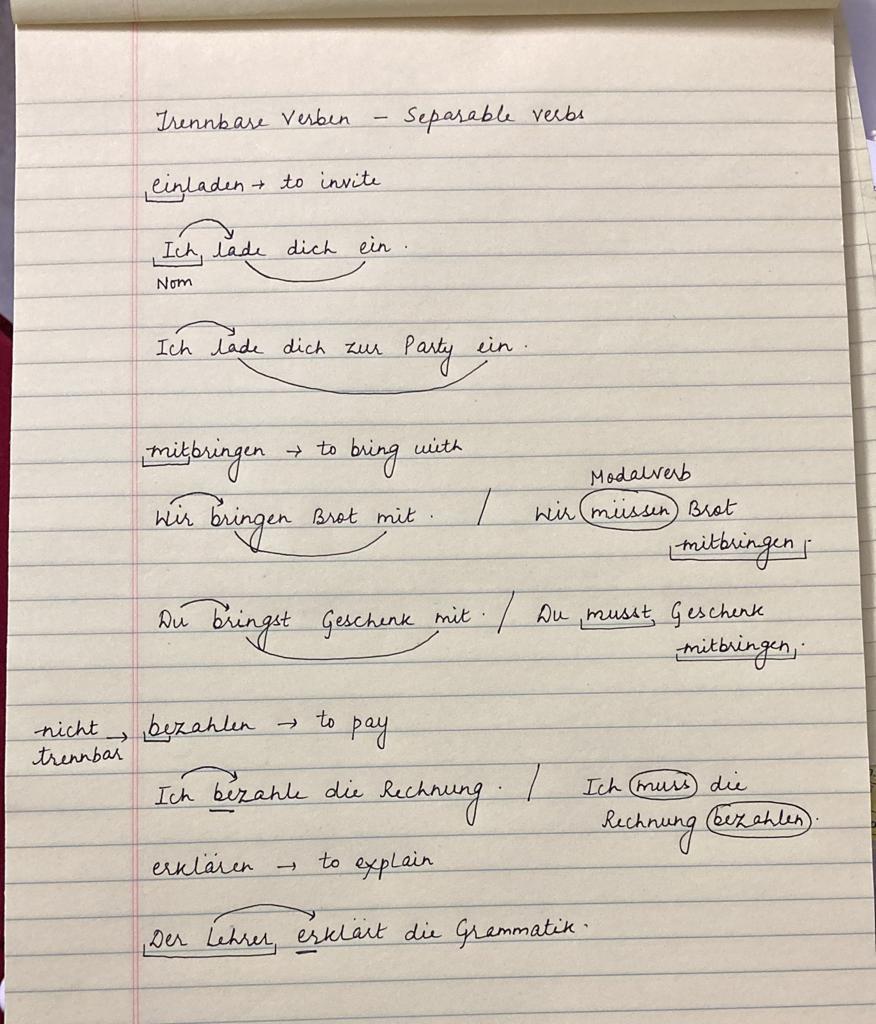 Trennbare Verben - Separable verbs
einladen → to invite
Ich lade dich ein.
Nom
Ich lade dich zur Party ein.
mitbringen → to bring with
Modalverb
Wir bringen Brot mit. / Wir müssen Brot
mitbringen.
Du bringst Geschenk mit. / Du musst Geschenk
mitbringen.
nicht trennbar → bezahlen → to pay
Ich bezahle die Rechnung. / Ich muss die
Rechnung bezahlen.
erklären → to explain
Der Lehrer erklärt die Grammatik.